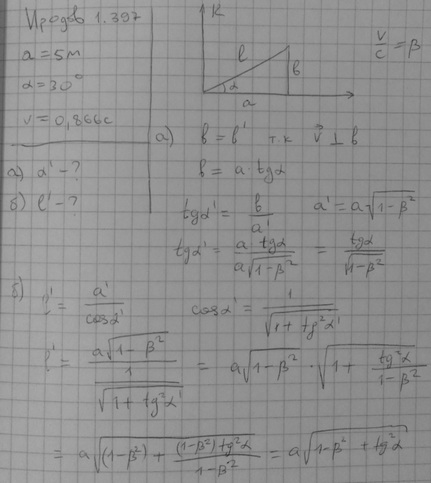 Иродов 1.397
a = 5м
α = 30°
v = 0,866c
а) α' - ?
б) l' - ?
K
l
в
α
a
v/c = β
а) в = в' т.к v⃗ ⊥ в
в = a · tgα
tgα' = в/a' a' = a√(1-β²)
tgα' = a tgα / a√(1-β²) = tgα / √(1-β²)
б) l' = a'/cosα' cosα' = 1/√(1 + tg²α')
l' = a√(1-β²) / (1/√(1 + tg²α')) = a√(1-β²) · √(1 + tg²α/(1-β²))
= a√((1-β²) + (1-β²)tg²α/(1-β²)) = a√(1-β² + tg²α)